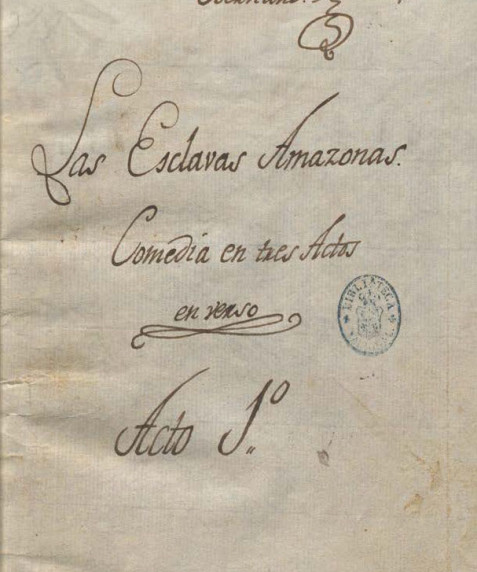 Las Esclavas Amazonas.
Comedia en tres Actos
en verso
BIBLIOTECA
Acto 1º